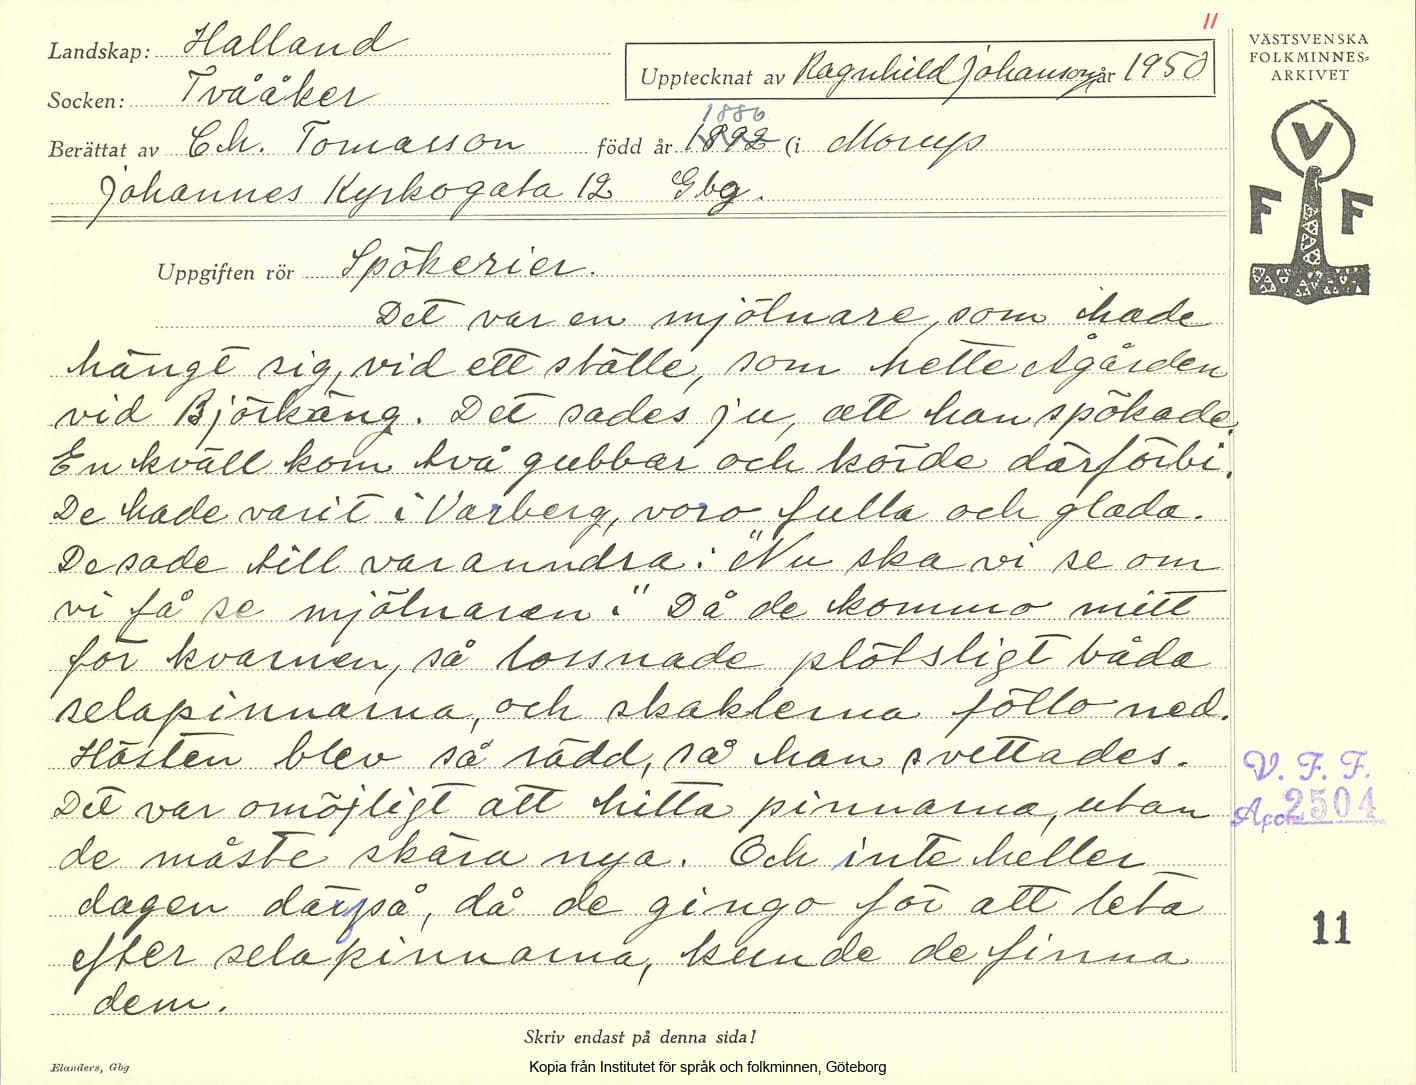 11
Landskap: Halland
Upptecknat av Ragnhild Johansson år 1950
Socken: Tvååker
1886
Berättat av Ch. Tomasson född år 1892 (i Morup
Johannes Kyrkogata 12 Gbg.
Uppgiften rör Spökerier.
Det var en mjölnare, som hade
hängt sig, vid ett ställe, som hette Ågården
vid Björkäng. Det sades ju, att han spökade.
En kväll kom två gubbar och körde därförbi.
De hade varit i Varberg, voro fulla och glada.
De sade till varanndra: "Nu ska vi se om
vi få se mjölnaren." Då de kommo mitt
för kvarnen, så lossnade plötsligt båda
selapinnarna, och skaklerna föllo ned.
Hästen blev så rädd, så han svettades.
Det var omöjligt att hitta pinnarna, utan
de måste skära nya. Och inte heller
dagen därpå, då de gingo för att leta
efter selapinnarna, kunde de finna
dem.
Skriv endast på denna sida!
Elanders, Gbg
Kopia från Institutet för språk och folkminnen, Göteborg
VÄSTSVENSKA
FOLKMINNES-
ARKIVET
V
F F
V. F. F.
Acc. 2504
11